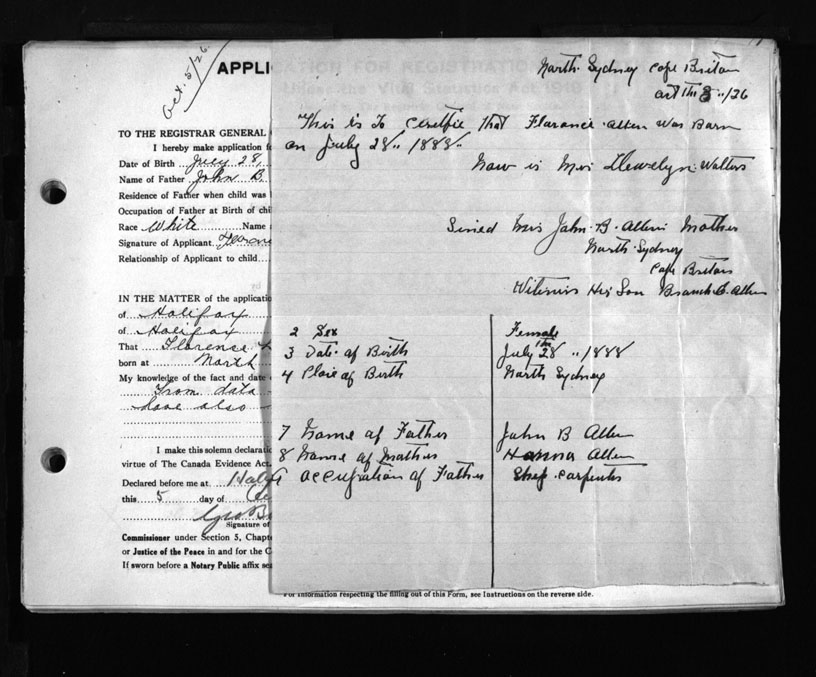 Oct. 5/26
APPLI
CATION FOR REGISTRATION
Unless the Vital Statistics Act 1919
TO THE REGISTRAR GENERAL
I hereby make application f
Date of Birth July 28,
Name of Father John B.
Residence of Father when child was
Occupation of Father at Birth of chi
Race White Name
Signature of Applicant Floren
Relationship of Applicant to child
IN THE MATTER of the applicatio
of Halifax
of Halifax
That Florence
born at North
My knowledge of the fact and date
From data
have also
I make this solemn declarati
virtue of The Canada Evidence Act.
Declared before me at Hali
this 5 day of
Geo B
Signature of
Commissioner under Section 5, Chapt
or Justice of the Peace in and for the C
If sworn before a Notary Public affix sea
For information respecting the filling out of this Form, see Instructions on the reverse side.
North Sydney Cape Briton
oct th 3 1/26
This is To Certfie That Florance Allen Was Born
on July 28 1888
Now is Mrs Llewelyn Walters
Sined Mrs John B. Allen Mother
North Sydney
Cape Briton
Witness Her Son Branch C. Allen
2 Sex Female
3 Date of Birth July 28th 1888
4 Place of Birth North Sydney
7 Name of Father John B Allen
8 Name of Mother Hanna Allen
9 accupration of Father Shep carpenter